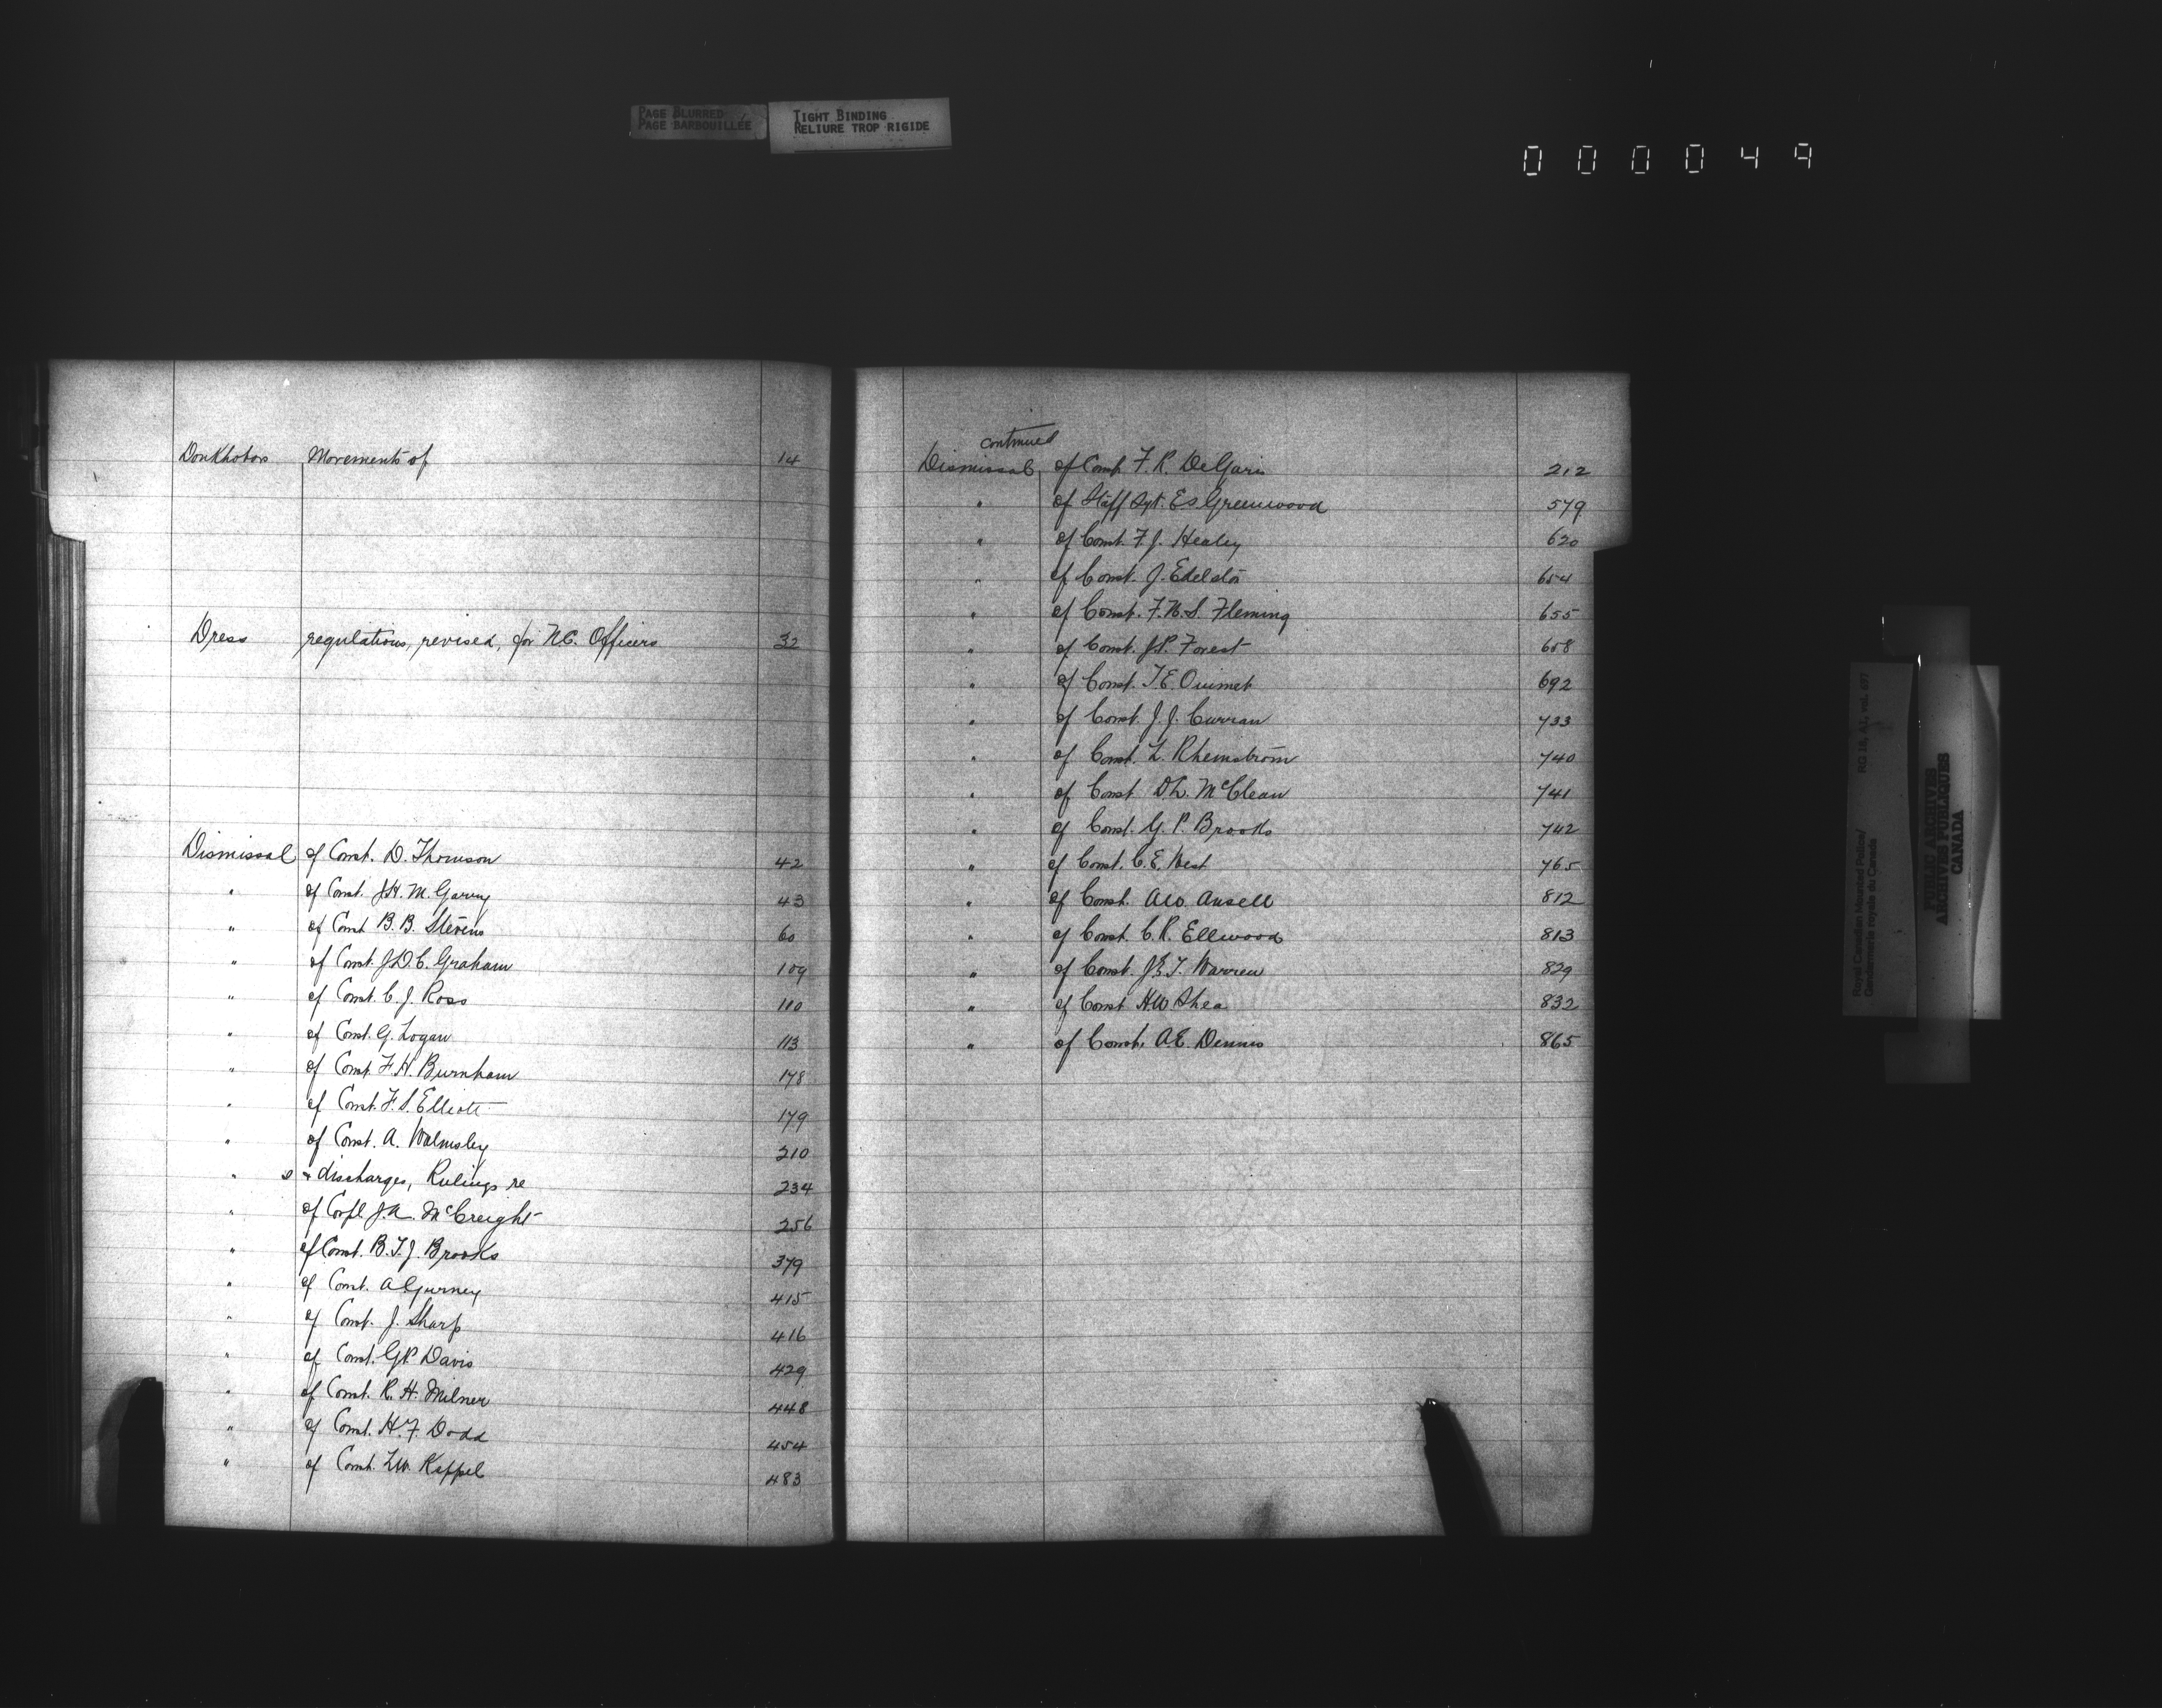 PAGE BLURRED
PAGE BARBOUILLÉE
TIGHT BINDING
RELIURE TROP RIGIDE
000049
Doukhobors Movements of 14
Dress regulations, revised, for N.C. Officers 32
Dismissal of Const. D. Thomson 42
" of Const. J.H. M. Garvey 43
" of Const B. B. Stevens 60
" of Const. J.D.C. Graham 109
" of Const. C. J. Ross 110
" of Const. G. Logan 113
" of Const. F. H. Burnham 178
" of Const. F. S. Elliott 179
" of Const. A. Walmsley 210
" s & discharges, Rulings re 234
" of Corpl. J. A. McCreight 256
" of Const. B. T. J. Brooks 379
" of Const. A Gurney 415
" of Const. J. Sharp 416
" of Const. G P Davis 429
" of Const. R. H. Milner 448
" of Const. H. F. Dodd 454
" of Const. L.W. Keppel 483
continued
Dismissal of Const. F. R. DeGaris 212
" of Staff Sgt. E S Greenwood 579
" of Const. F. J. Healey 620
" of Const. J. Edelston 654
" of Const. F. H. S. Fleming 655
" of Const. J.P. Forest 658
" of Const. T. E. Ouimet 692
" of Const. J. J. Curran 733
" of Const. L. Rhemstrom 740
" of Const D.L. McClean 741
" of Const. G. P. Brooks 742
" of Const. C. E. West 765
" of Const. A W. Ansell 812
" of Const. C. R. Ellwood 813
" of Const. J E T. Warren 829
" of Const H.W Shea 832
" of Const. A.E. Dennis 865
Royal Canadian Mounted Police/
Gendarmerie royale du Canada
RG 18, A1, vol. 697
PUBLIC ARCHIVES
ARCHIVES PUBLIQUES
CANADA